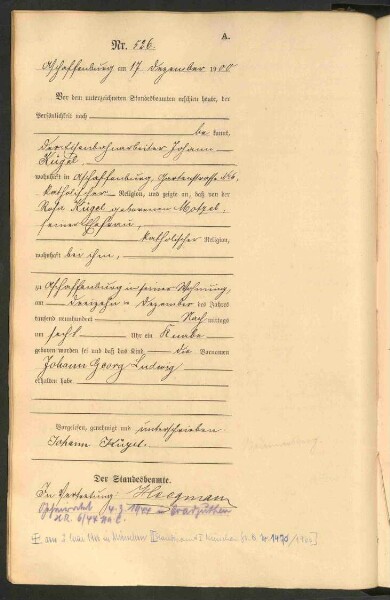 A.
Nr. 526.
Aschaffenburg am 17. Dezember 1900
Vor dem unterzeichneten Standesbeamten erschien heute, der
Persönlichkeit nach
be kannt,
der Eisenbahnarbeiter Johann
Kügel,
wohnhaft in Aschaffenburg, Gartenstraße
katholischer Religion, und zeigte an, daß von der
Rosa Kügel geborenen Motzel,
seiner Ehefrau,
katholischer Religion,
wohnhaft bei ihm,
zu Aschaffenburg in seiner Wohnung,
am dreizehn = Dezember des Jahres
tausend neunhundert Nachmittags
um sechs Uhr ein Knabe
geboren worden sei und daß das Kind die Vornamen
Johann Georg Ludwig
erhalten habe
Vorgelesen, genehmigt und unterschrieben
Johann Kügel.
Der Standesbeamte.
In Vertretung
am in München